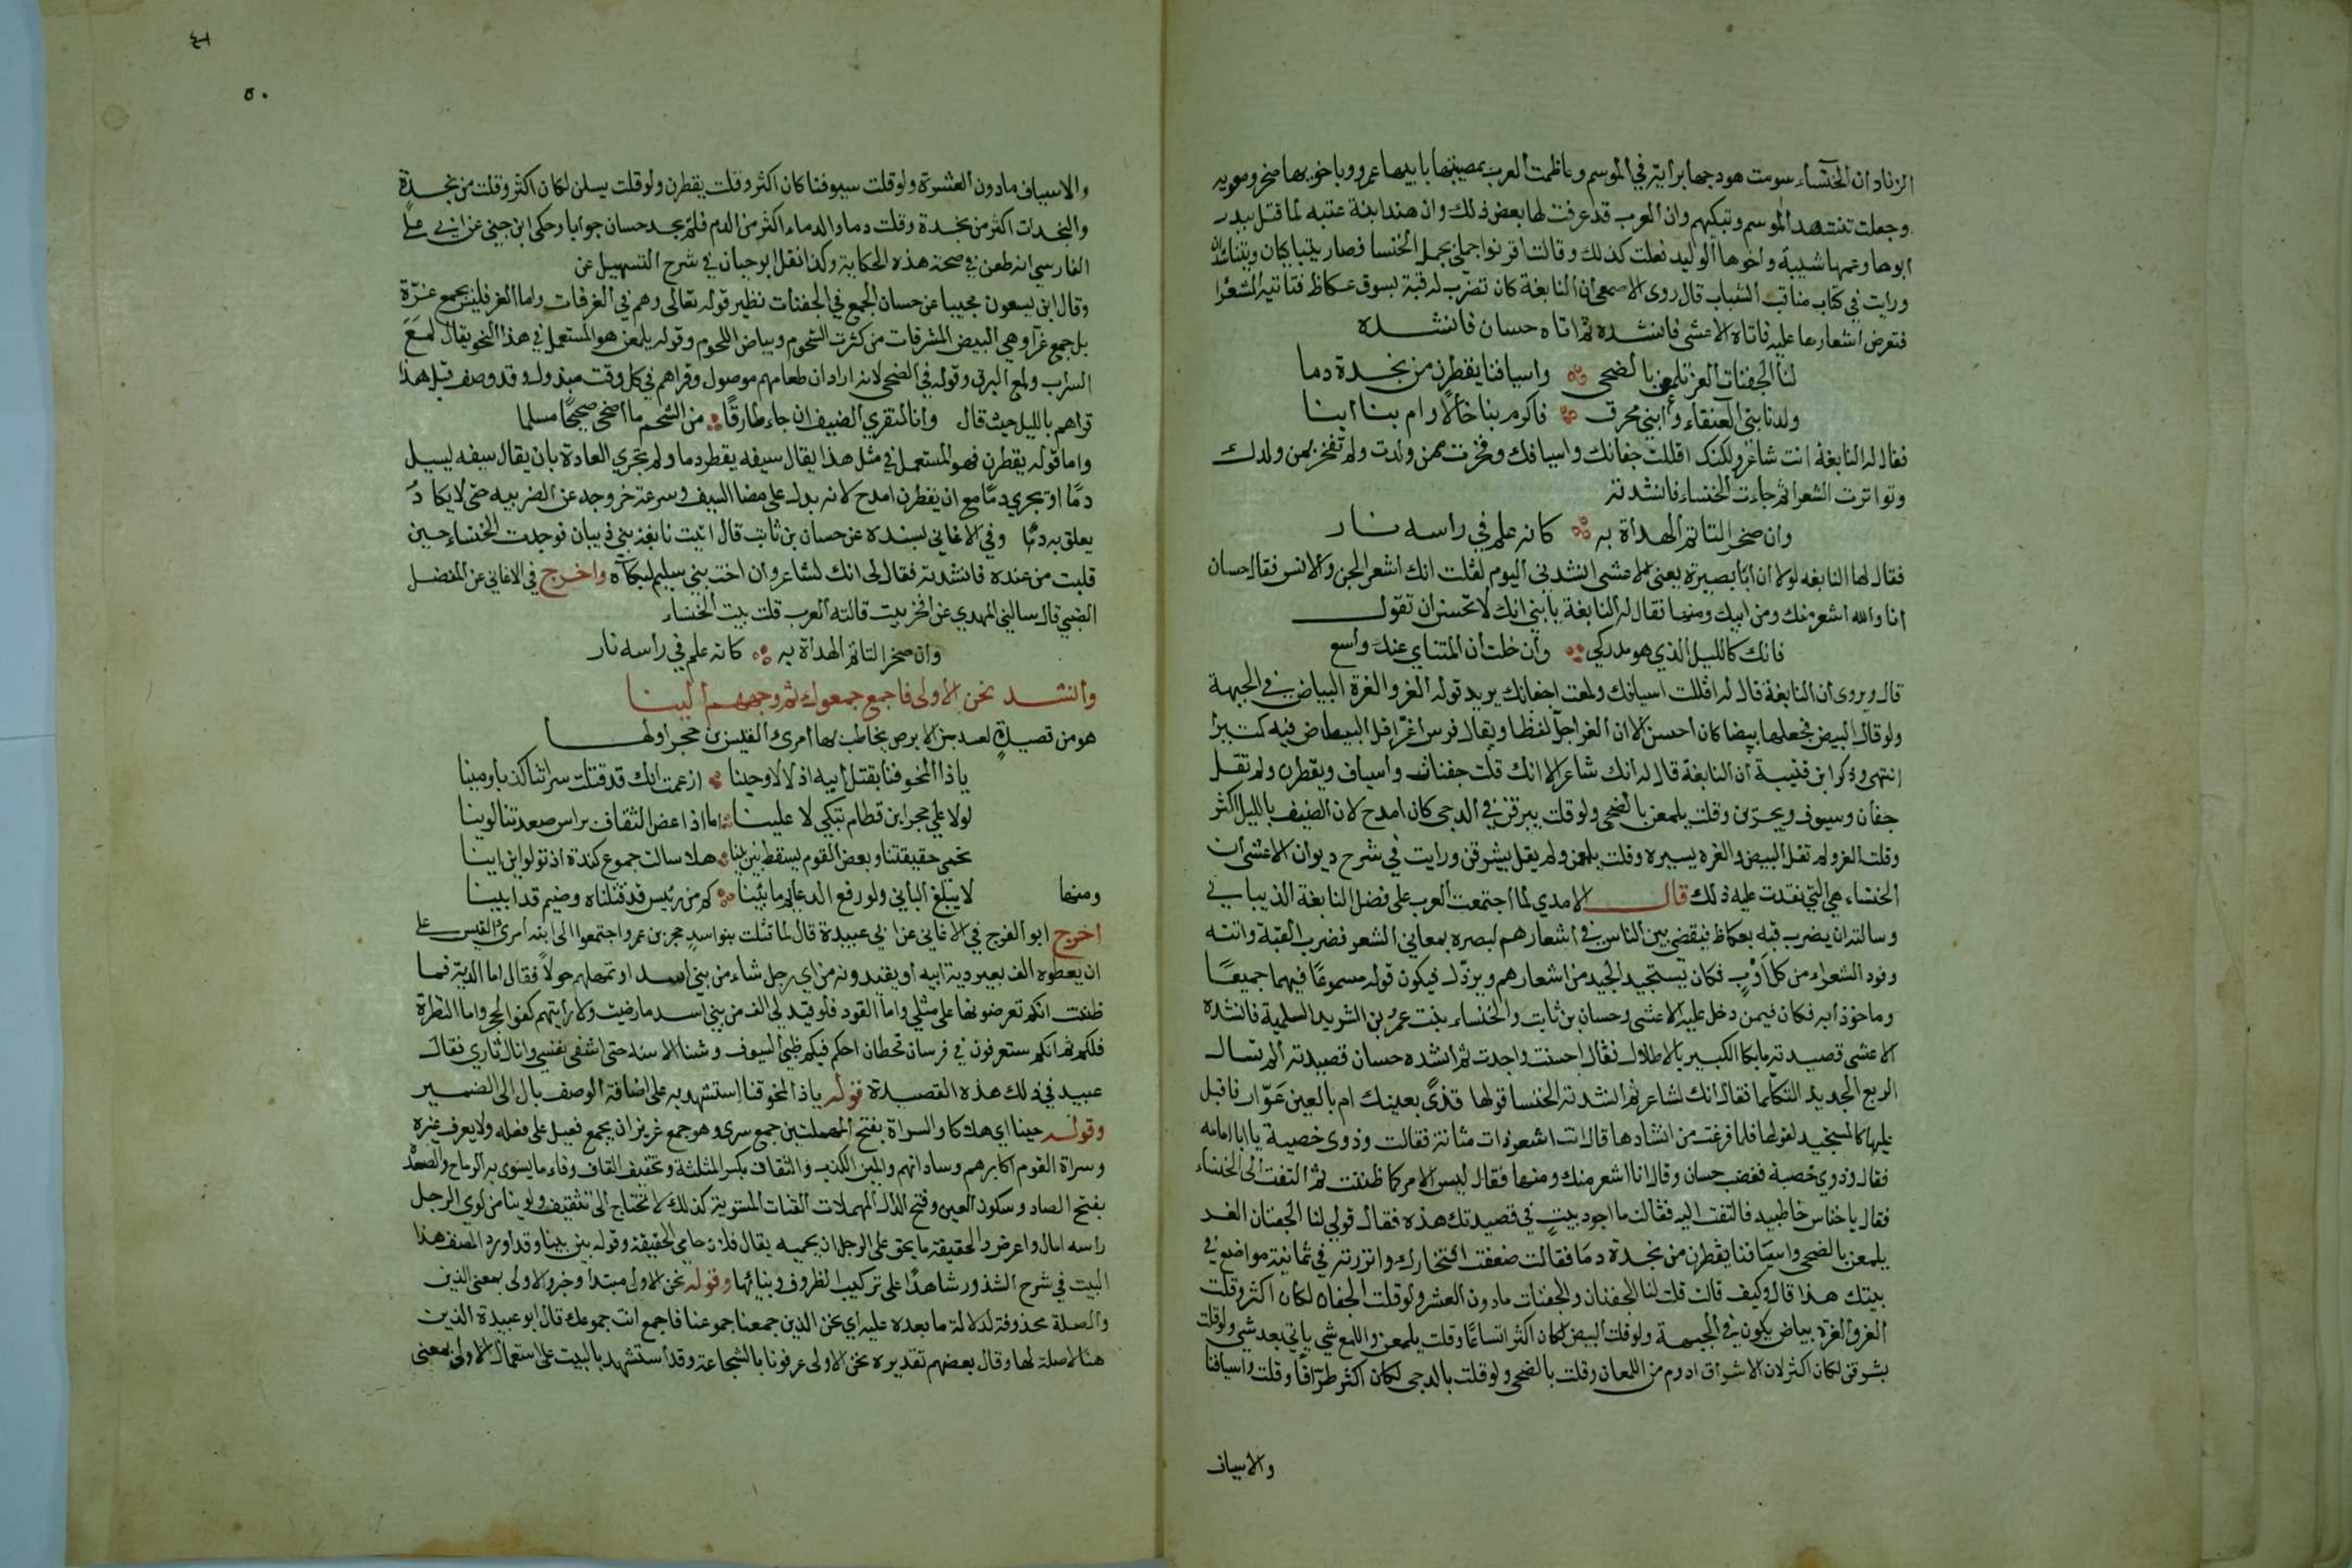 الزناد ان الخنساء سومت هودجها براية في الموسم وعاظمت العرب بمصيبتها بابيها عمرو وباخويها صخر ومعويه
وجعلت تنتهد الموسم وتبكيهم وان العرب قد عرفت لها بعض ذلك وان هندا بنة عتبه لما قتل ببدر
ابوها وعمها شيبة واخوها الوليد فعلت كذلك وقالت اقرنوا جملي بجمل الخنسا فصار يتباكيان ويتناشدان
ورايت في كتاب مناقب الشباب قال روى الاصمعي ان النابغة كان تضرب له قبة بسوق عكاظ فتاتيه الشعرا
فتعرض اشعارها عليه فاتاه الاعشى فانشده ثم اتاه حسان فانشده
لنا الجفنات الغر يلمعن بالضحى واسيافنا يقطرن من نجدة دما
ولدنا بني العنقاء وابني محرق فاكرم بنا خالا وام بنا ابنا
فقال له النابغة انت شاعر ولكنك اقللت جفانك واسيافك وفخرت بمن ولدت ولم تفخر بمن ولدك
وتواترت الشعرا ثم جاءت الخنساء فانشدته
وان صخرا لتاتم الهداة به كانه علم في راسه نار
فقال لها النابغه لولا ان ابا بصيرة يعني الاعشى انشدني اليوم لقلت انك اشعر الجن والانس فقال حسان
انا والله اشعر منك ومن ابيك ومنها فقال له النابغة يا بني انك لا تحسن ان تقول
فانك كالليل الذي هو مدركي وان خلت ان المنتاي عنك واسع
قال ويروى ان النابغة قال له اقللت اسيافك ولمعت اجفانك يريد قوله الغر والغرة البياض في الجبهة
ولو قال البيض فجعلها بيضا كان احسن الا ان الغر اجل لفظا ويقال فرس اغر اقل البياض فيه كثيرا
انتهى وذكر ابن قتيبة ان النابغة قال له انك شاعر الا انك قلت جفنات واسياف ويقطرن ولم تقل
جفان وسيوف ويجرين وقلت يلمعن بالضحى ولو قلت يبرقن في الدجى كان امدح لان الضيف بالليل اكثر
وقلت الغر ولم تقل البيض والغره يسيره وقلت يلمعن ولم يقل يشرقن ورايت في شرح ديوان الاعشى ان
الخنساء هي التي نقدت عليه ذلك قال الامدي لما اجتمعت العرب على فضل النابغة الذبياني
وسالته ان يضرب قبه بعكاظ فيقضي بين الناس في اشعارهم لبصره بمعاني الشعر فضرب القبة واتته
وفود الشعراء من كل اوب فكان يستجيد الجيد من اشعارهم ويرذل فيكون قوله مسموعا فيهما جميعا
وماخوذا به فكان فيمن دخل عليه الاعشى وحسان بن ثابت والخنساء بنت عمرو بن الشريد السلمية فانشده
الاعشى قصيدته ما بكا الكبير بالاطلال فقال احسنت واجدت ثم انشده حسان قصيدته الم تسال
الربع الجديد التكلما فقال انك لشاعر ثم انشدته الخنسا قولها قذى بعينك ام بالعين عوار فاقبل
عليها كالمستجيد لقولها فلما فرغت من انشادها قال انت اشعر ذات مثانة فقالت وذوي خصية يا ابا امامه
فقال وذوي خصية فغضب حسان وقال انا اشعر منك ومنها فقال ليس الامر كما ظننت ثم التفت الى الخنساء
فقال يا خناس خاطبيه فالتفت اليه فقالت ما اجود بيت في قصيدتك هذه فقال قولي لنا الجفنات الغر
يلمعن بالضحى واسيافنا يقطرن من نجدة دما فقالت ضعفت افتخارك وانزرته في ثمانية مواضع في
بيتك هذا قال وكيف قالت قلت لنا الجفنات والجفنات مادون العشر ولو قلت الجفان لكان اكثر وقلت
الغر والغرة بياض يكون في الجبهة ولو قلت البيض لكان اكثر اتساعا وقلت يلمعن واللمع شي ياتي بعد شي ولو قلت
يشرقن لكان اكثر لان الاشراق ادوم من اللمعان وقلت بالضحى ولو قلت بالدجى لكان اكثر طراقا وقلت واسيافنا
والاسياف
٥٠
والاسياف مادون العشرة ولو قلت سيوفنا كان اكثر وقلت يقطرن ولو قلت يسلن لكان اكثر وقلت من نجدة
والنجدات اكثر من نجدة وقلت دما والدماء اكثر من الدم فلم يجد حسان جوابا وحكى ابن جني عن ابي علي
الفارسي انه طعن في صحة هذه الحكاية وكذا نقل ابو حيان في شرح التسهيل عن
وقال ابن يسعون مجيبا عن حسان الجمع في الجفنات نظير قوله تعالى وهم في الغرفات واما الغر فليس بجمع غرة
بل جمع غرا وهي البيض المشرقات من كثرت الشحوم وبياض اللحوم وقوله يلمعن هو المستعمل في هذا النحو يقال لمع
السراب ولمع البرق وقوله في الضحى لانه اراد ان طعامهم موصول وقراهم في كل وقت مبذول وقد وصف قبل هذا
قراهم بالليل حيث قال وانا لنقري الضيف ان جاء طارقا من الشحم ما اضحى صحيحا مسلما
واما قوله يقطرن فهو المستعمل في مثل هذا يقال سيفه يقطر دما ولم تجري العادة بان يقال سيفه يسيل
دما او يجري دما مع ان يقطرن امدح لانه يدل على مضا السيف وسرعة خروجه عن الضريبه حتى لا يكاد
يعلق به دما وفي الاغاني بسنده عن حسان بن ثابت قال اتيت نابغة بني ذبيان فوجدت الخنساء حين
قلبت من عنده فانشدته فقال لي انك لشاعر وان اخت بني سليم لبكاه واخرج في الاغاني عن المفضل
الضبي قال سالني المهدي عن افخر بيت قالته العرب قلت بيت الخنساء
وان صخرا لتاتم الهداة به كانه علم في راسه نار
وانشد نحن الاولى فاجمع جموعك ثم وجههم الينا
هو من قصيدة لعبيد بن الابرص يخاطب بها امرئ القيس بن حجر اولها
ياذا المخوفنا بقتل ابيه اذلالا وحينا ازعمت انك قد قتلت سراتنا كذبا ومينا
لولا على حجر ابن قطام تبكي لا علينا اما اذا عض الثقاف براس صعدتنا لوينا
نحمي حقيقتنا وبعض القوم يسقط بين بينا هلا سالت جموع كندة اذ تولوا اين اينا
ومنها لا يبلغ الباني ولو رفع الدعايم ما بنينا كم من رئيس قد قتلناه وضيم قد ابينا
اخرج ابو الفرج في الاغاني عن ابي عبيدة قال لما قتلت بنو اسد حجر بن عمرو اجتمعوا الى ابنه امرئ القيس على
ان يعطوه الف بعير دية ابيه او يقيدونه من اي رجل شاء من بني اسد او تمهلهم حولا فقال اما الدية فما
ظننت انكم تعرضونها على مثلي واما القود فلو قيد لي الف من بني اسد ما رضيت ولا رايتهم كفوا لحجر واما النظرة
فلكم ثم انكم ستعرفون في فرسان قحطان احكم فيكم ظبي السيوف وشبا الاسنة حتى اشفى نفسي وانال ثاري فقال
عبيد في ذلك هذه القصيدة قوله ياذا المخوفنا استشهد به على اضافة الوصف بال الى الضمير
وقوله حينا اي هلاكا والسراة بفتح المهملتين جمع سري وهو جمع غريز ان يجمع فعيل على فعله ولا يعرف غيره
وسراة القوم اكابرهم وساداتهم والمين الكذب والثقاف بكسر المثلثة وتخفيف القاف وفاء ما يسوى به الرماح والصعدة
بفتح الصاد وسكون العين وفتح الدال المهملات القناة المستوية كذلك لا تحتاج الى تثقيف ولوينا من لوى الرجل
راسه امال واعرض والحقيقة ما يحق على الرجل ان يحميه يقال فلان حامي الحقيقة وقوله بين بينا وقد اورد المصنف هذا
البيت في شرح الشذور شاهدا على تركيب الظروف وبنائها وقوله نحن الاولى مبتدا وخبر والاولى بمعنى الذين
والصلة محذوفة لدلالة ما بعده عليه اي نحن الذين جمعنا جموعنا فاجمع انت جموعك قال ابو عبيدة الذين
هنا لا صلة لها وقال بعضهم تقديره نحن الاولى عرفونا بالشجاعة وقد استشهد بالبيت على استعمال الاولى بمعنى